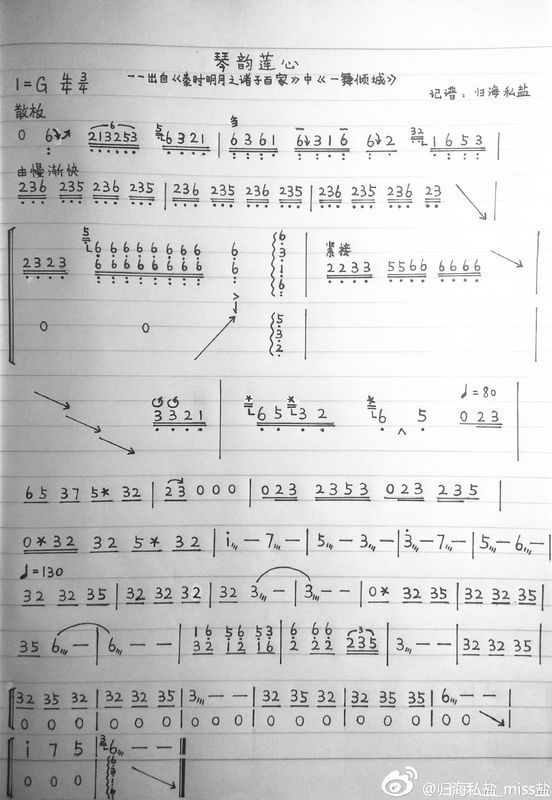 琴韵莲心
1=G 4/4 3/4
——出自《秦时明月之诸子百家》中《一舞倾城》
记谱：归海私盐
散板
0 6 213253 5 6321 | 6361 6316 62 32 1653 |
由慢渐快
236 235 236 235 | 236 235 236 235 | 236 235 236 23
5
6 6 6 6 6 6 6 6 6 紧接
2323 6 6 6 6 6 6 6 6 3 1 6 2233 5566 6666
0 0 5 3 2
♩=80
3321 | 65 32 6 5 023
65 37 5* 32 | 23 0 0 0 | 023 2353 023 235 |
0*32 32 5* 32 | i 7 - | 5 - 3 - | 3 - 7 - | 5 - 6 - |
♩=130
32 32 35 | 32 32 32 | 32 3 - | 3 - - | 0* 32 35 | 32 32 35 |
35 6 - | 6 - - | 16 56 53 | 6 66 3 | 3 - - | 32 32 35 |
32 i2 i6 2 22 235
32 35 32 | 32 32 35 | 3 - - | 32 35 32 | 32 32 35 | 6 - - |
0 0 0 0 0 0 0 0 0 0 0 0 0 0 0 0 0
i 7 5 | 3 6 - -
0 0 0
@归海私盐_miss盐